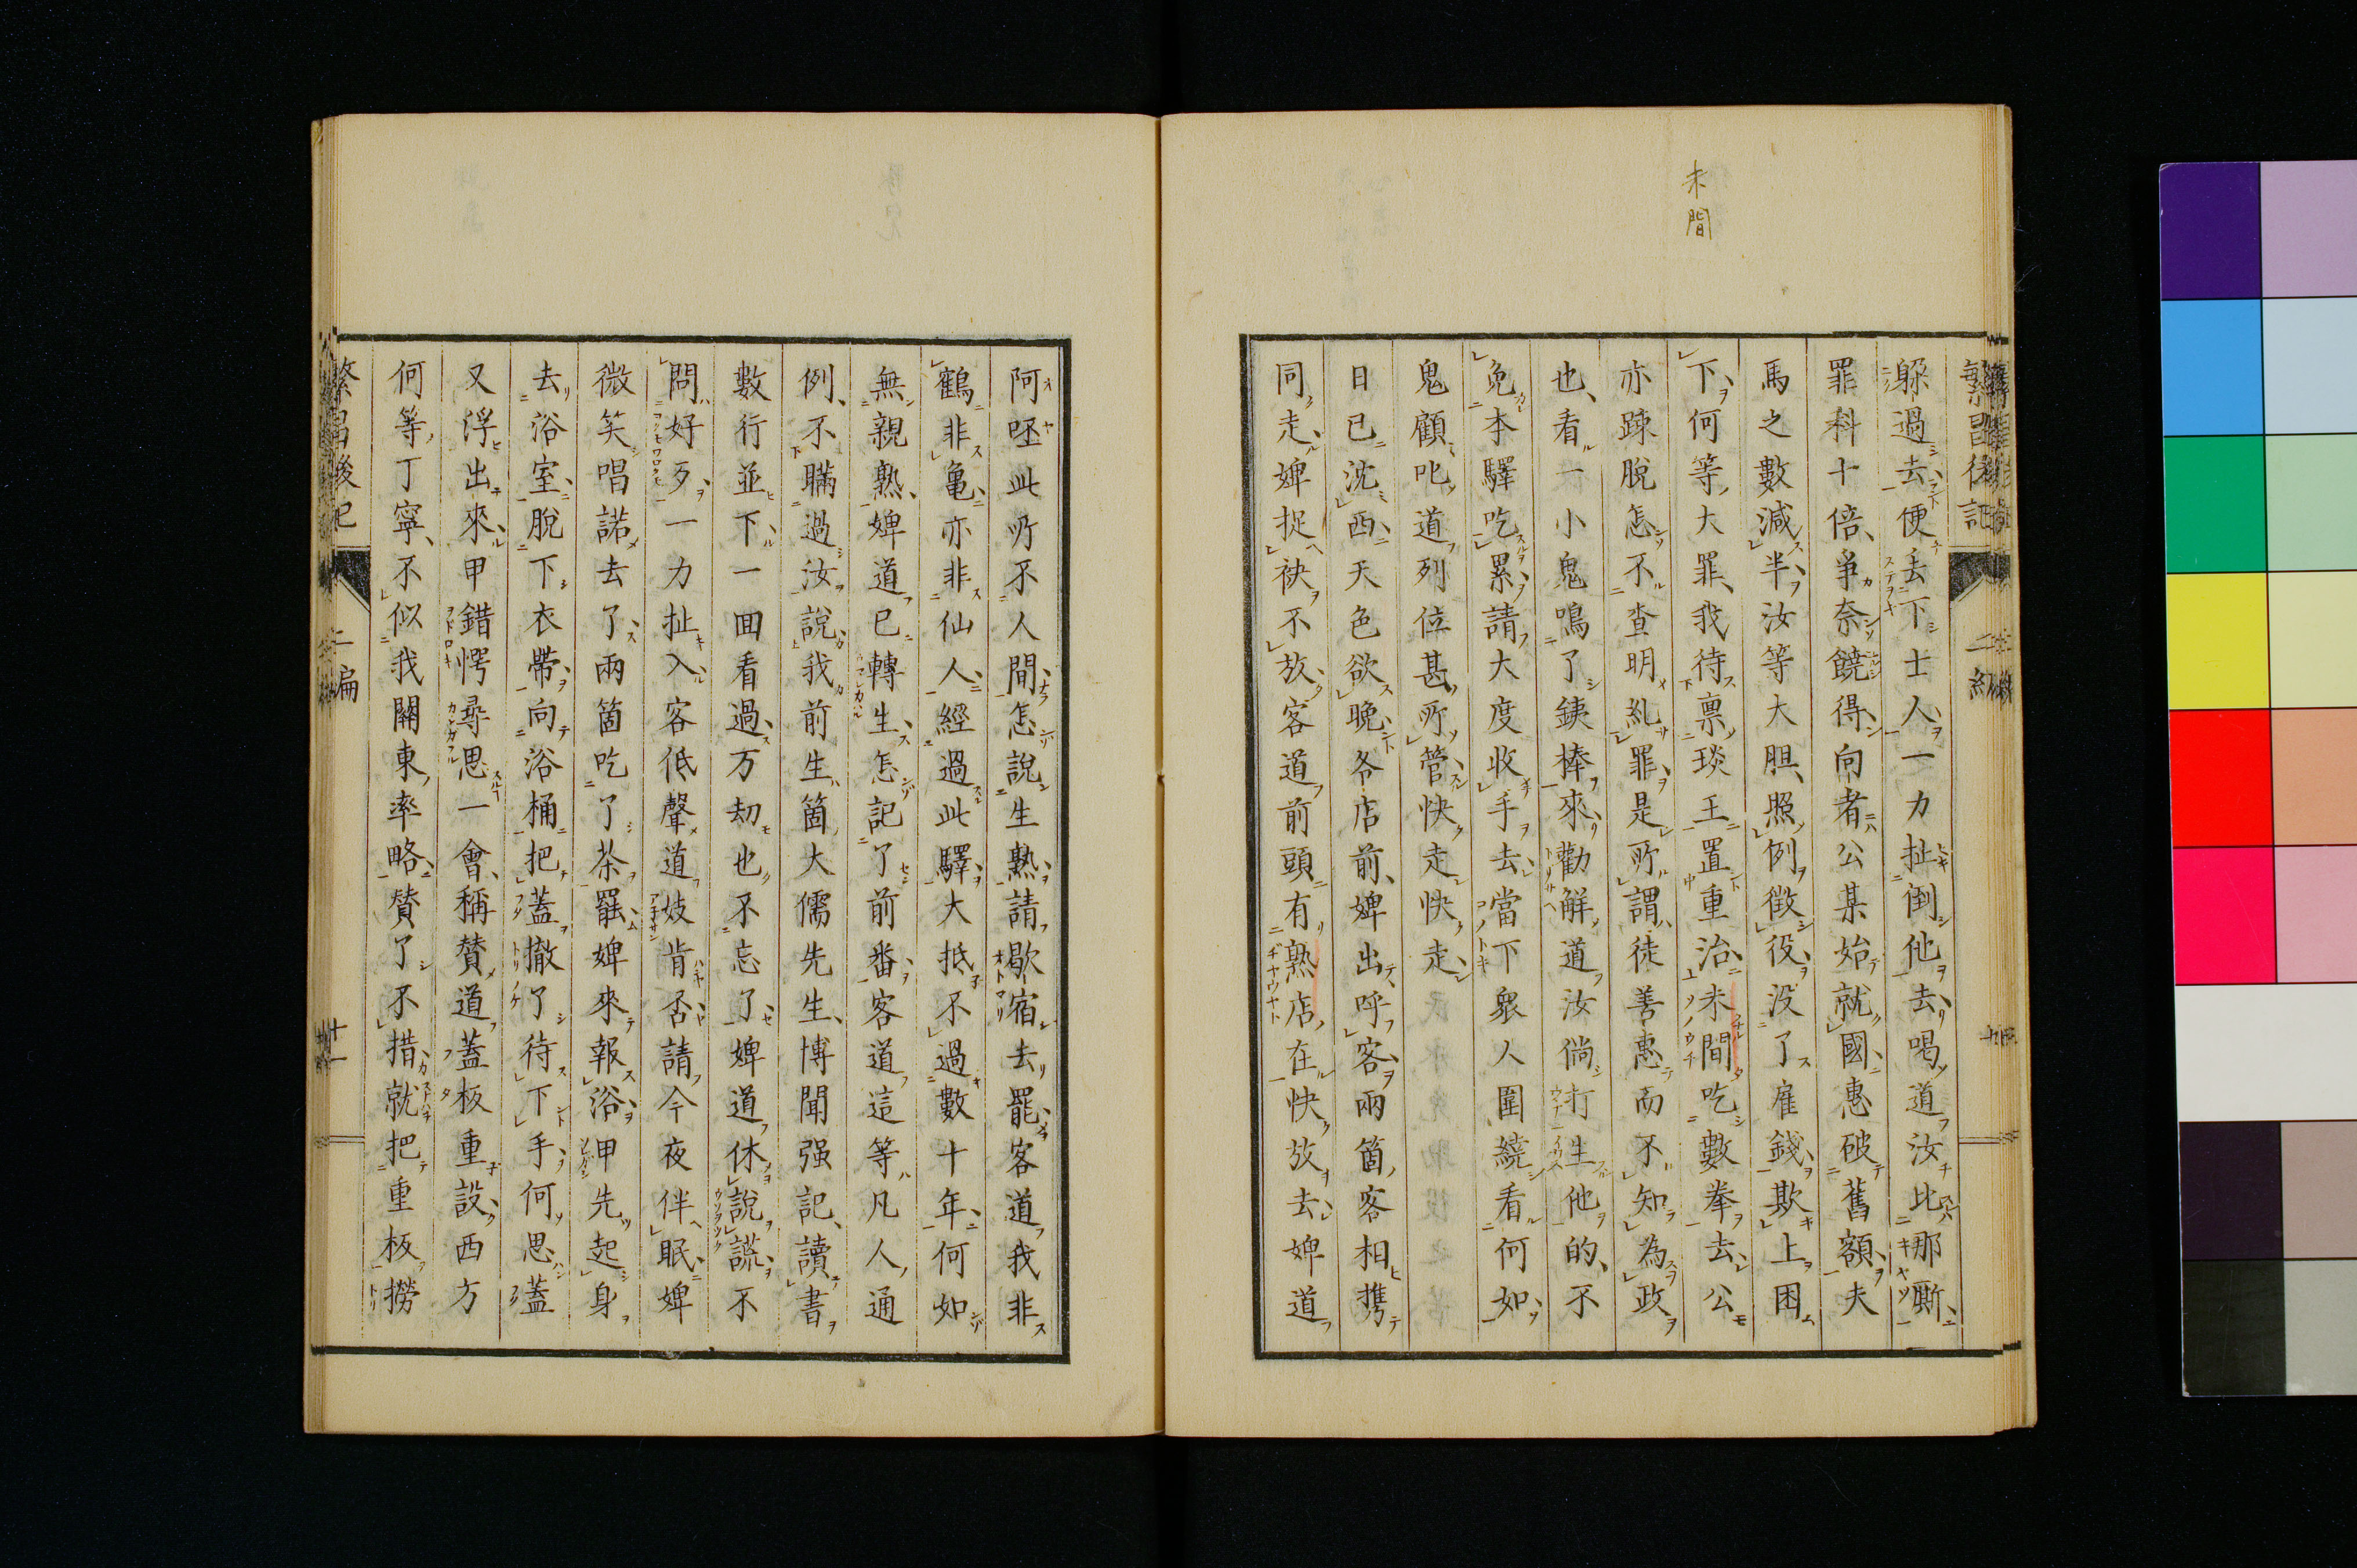 未間
躱過去便丢下士人一力扯倒他去喝道汝比那厮
罪科十倍爭奈饒得向者公某始就國惠破舊額夫
馬之數減半汝等大胆照例徴役没了雇錢欺上困
下何等大罪我待禀琰王置重治未間吃數拳去公
亦踈脱怎不查明糺罪是所謂徒善惠而不知為政
也看一小鬼鳴了鉄棒來勸解道汝倘打生他的不
免本驛吃累請大度收手去當下衆人圍繞看何如
鬼顧叱道列位甚所管快走快走
日已沈西天色欲晩各店前婢出呼客兩箇客相携
同走婢捉袂不放客道前頭有熟店在快放去婢道
阿呸此所不人間怎說生熟請歇宿去罷客道我非
鶴非亀亦非仙人經過此驛大抵不過數十年何如
無親熟婢道已轉生怎記了前番客道這等凡人通
例不瞞過汝說我前生箇大儒先生博聞强記讀書
數行並下一囬看過万劫也不忘了婢道休說謊不
問好歹一力扯入客低聲道妓肯否請今夜伴眠婢
微笑唱諾去了兩箇吃了茶罷婢來報浴甲先起身
去浴室脱下衣帶向浴桶把蓋撤了待下手何思蓋
又浮出來甲錯愕尋思一會稱賛道蓋板重設西方
何等丁寧不似我關東率略賛了不措就把重板撈
繁昌後記
二編
十一